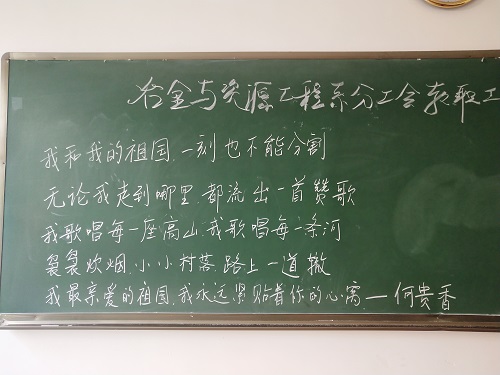 冶金与资源工程系分工会教职工
我和我的祖国,一刻也不能分割
无论我走到哪里,都流出一首赞歌
我歌唱每一座高山,我歌唱每一条河
袅袅炊烟,小小村落,路上一道撤
我最亲爱的祖国,我永远紧贴着你的心离—何贵香